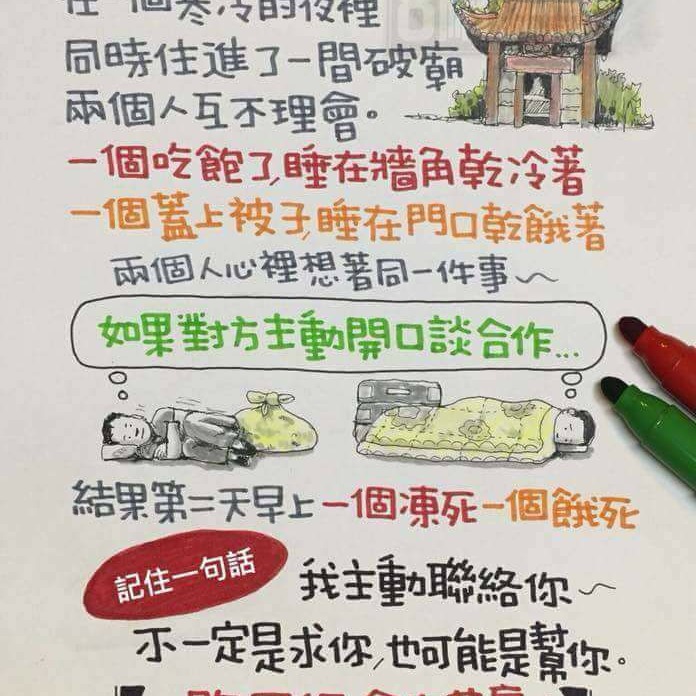 在一個寒冷的夜裡
同時住進了一間破廟
兩個人互不理會。
一個吃飽了,睡在牆角乾冷著
一個蓋上被子,睡在門口乾餓著
兩個人心裡想著同一件事~
如果對方主動開口談合作...
結果第二天早上一個凍死一個餓死
記住一句話
我主動聯絡你~
不一定是求你,也可能是幫你。